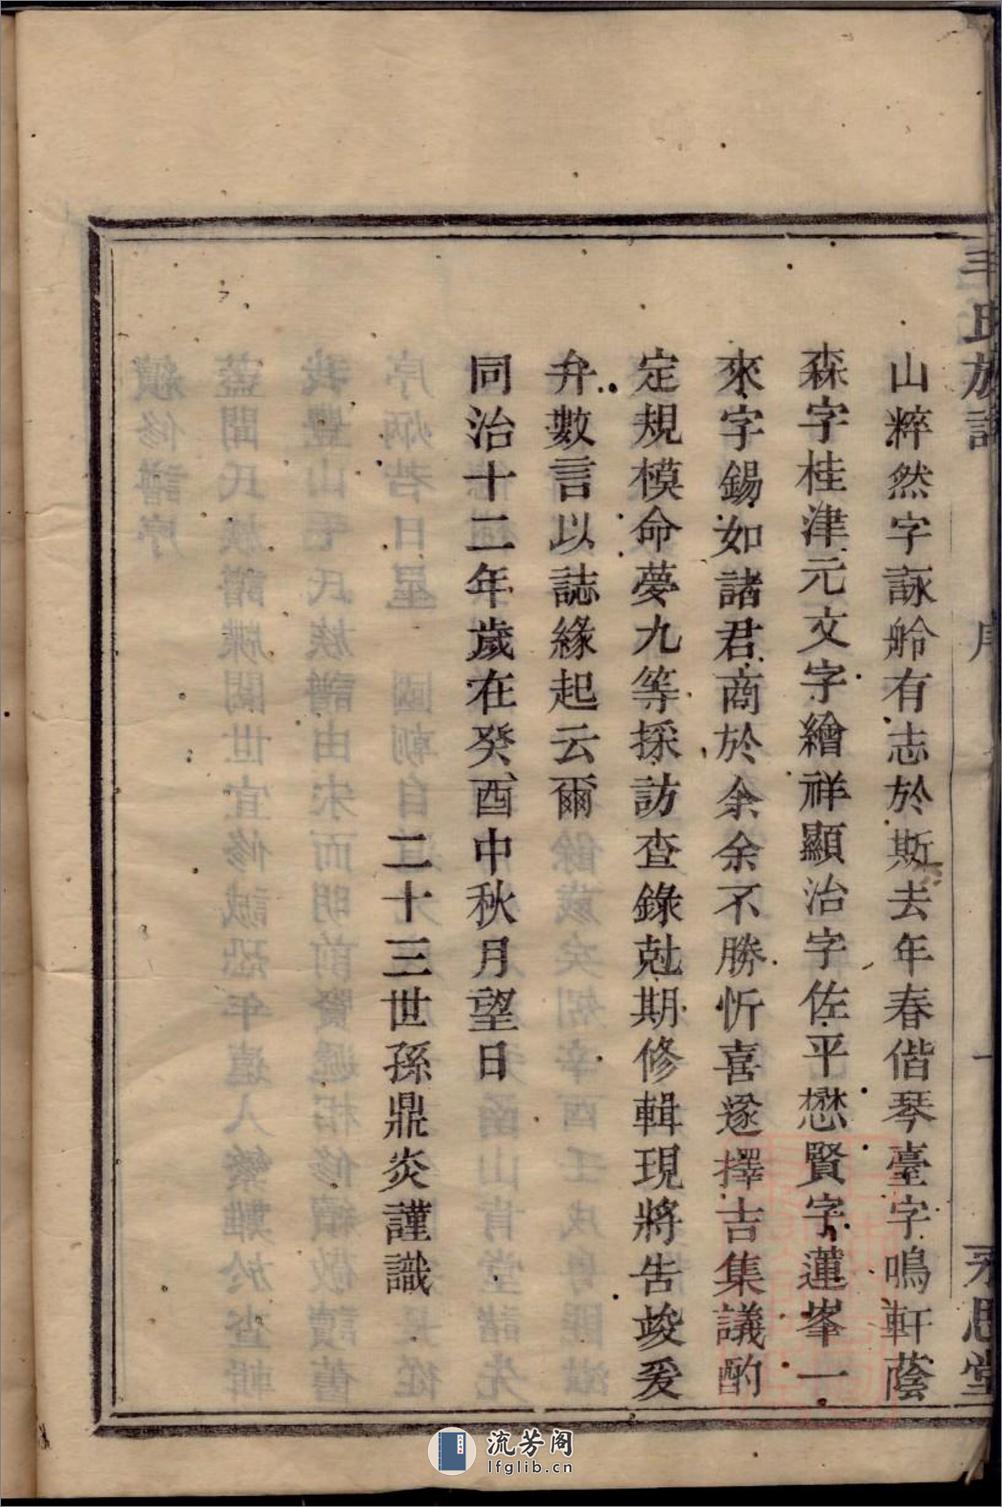 毛氏族譜
序
永思堂
山粹然字詠舲有志於斯去年春偕琴臺字鳴軒蔭
森字桂津元文字繪祥顯治字佐平懋賢字蓮峯一
來字錫如諸君商於余余不勝忻喜遂擇吉集議酌
定規模命夢九等採訪查錄尅期修輯現將告竣爰
弁數言以誌緣起云爾
同治十二年歲在癸酉中秋月望日
二十三世孫鼎炎謹識
流芳阁
lfglib.cn